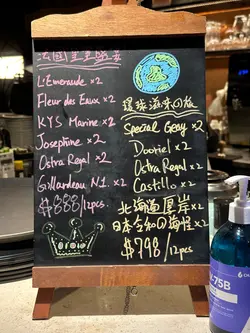 法國生蠔
L'Emeraude ×2
Fleur des Eaux ×2
KYS Marine ×2
Josephine ×2
Ostra Regal ×2
Gillardeau N1. ×2
$888/12pcs.
環球滋味の旅
Special Geay ×2
Dooriel ×2
Ostra Regal ×2
Castillo ×2
北海道厚岸 ×2
日本令和の蠔 ×2
$798/12pcs
-75B